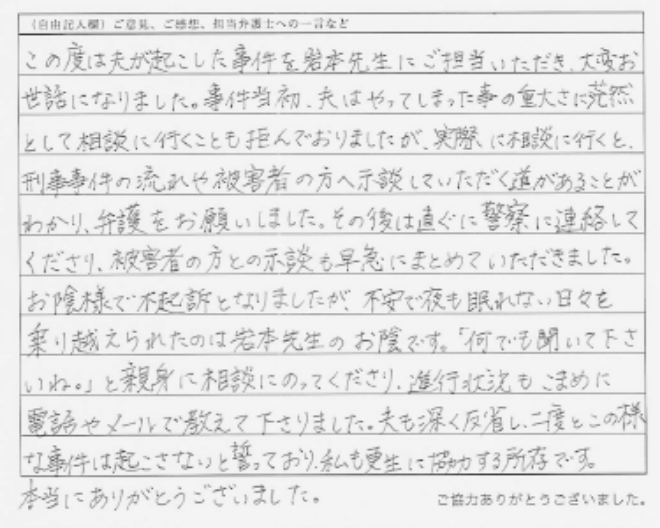 （自由記入欄）ご意見、ご感想、担当弁護士への一言など
この度は夫が起こした事件を岩本先生にご担当いただき、大変お
世話になりました。事件当初、夫はやってしまった事の重大さに茫然
として相談に行くことも拒んでおりましたが、実際に相談に行くと、
刑事事件の流れや被害者の方へ示談していただく道があることが
わかり、弁護をお願いしました。その後は直ぐに警察に連絡して
くださり、被害者の方との示談も早急にまとめていただきました。
お陰様で不起訴となりましたが、不安で夜も眠れない日々を
乗り越えられたのは岩本先生のお陰です。「何でも聞いて下さ
いね。」と親身に相談にのってくださり、進行状況もこまめに
電話やメールで教えて下さりました。夫も深く反省し、二度とこの様
な事件は起こさないと誓っており、私も更生に協力する所存です。
本当にありがとうございました。
ご協力ありがとうございました。